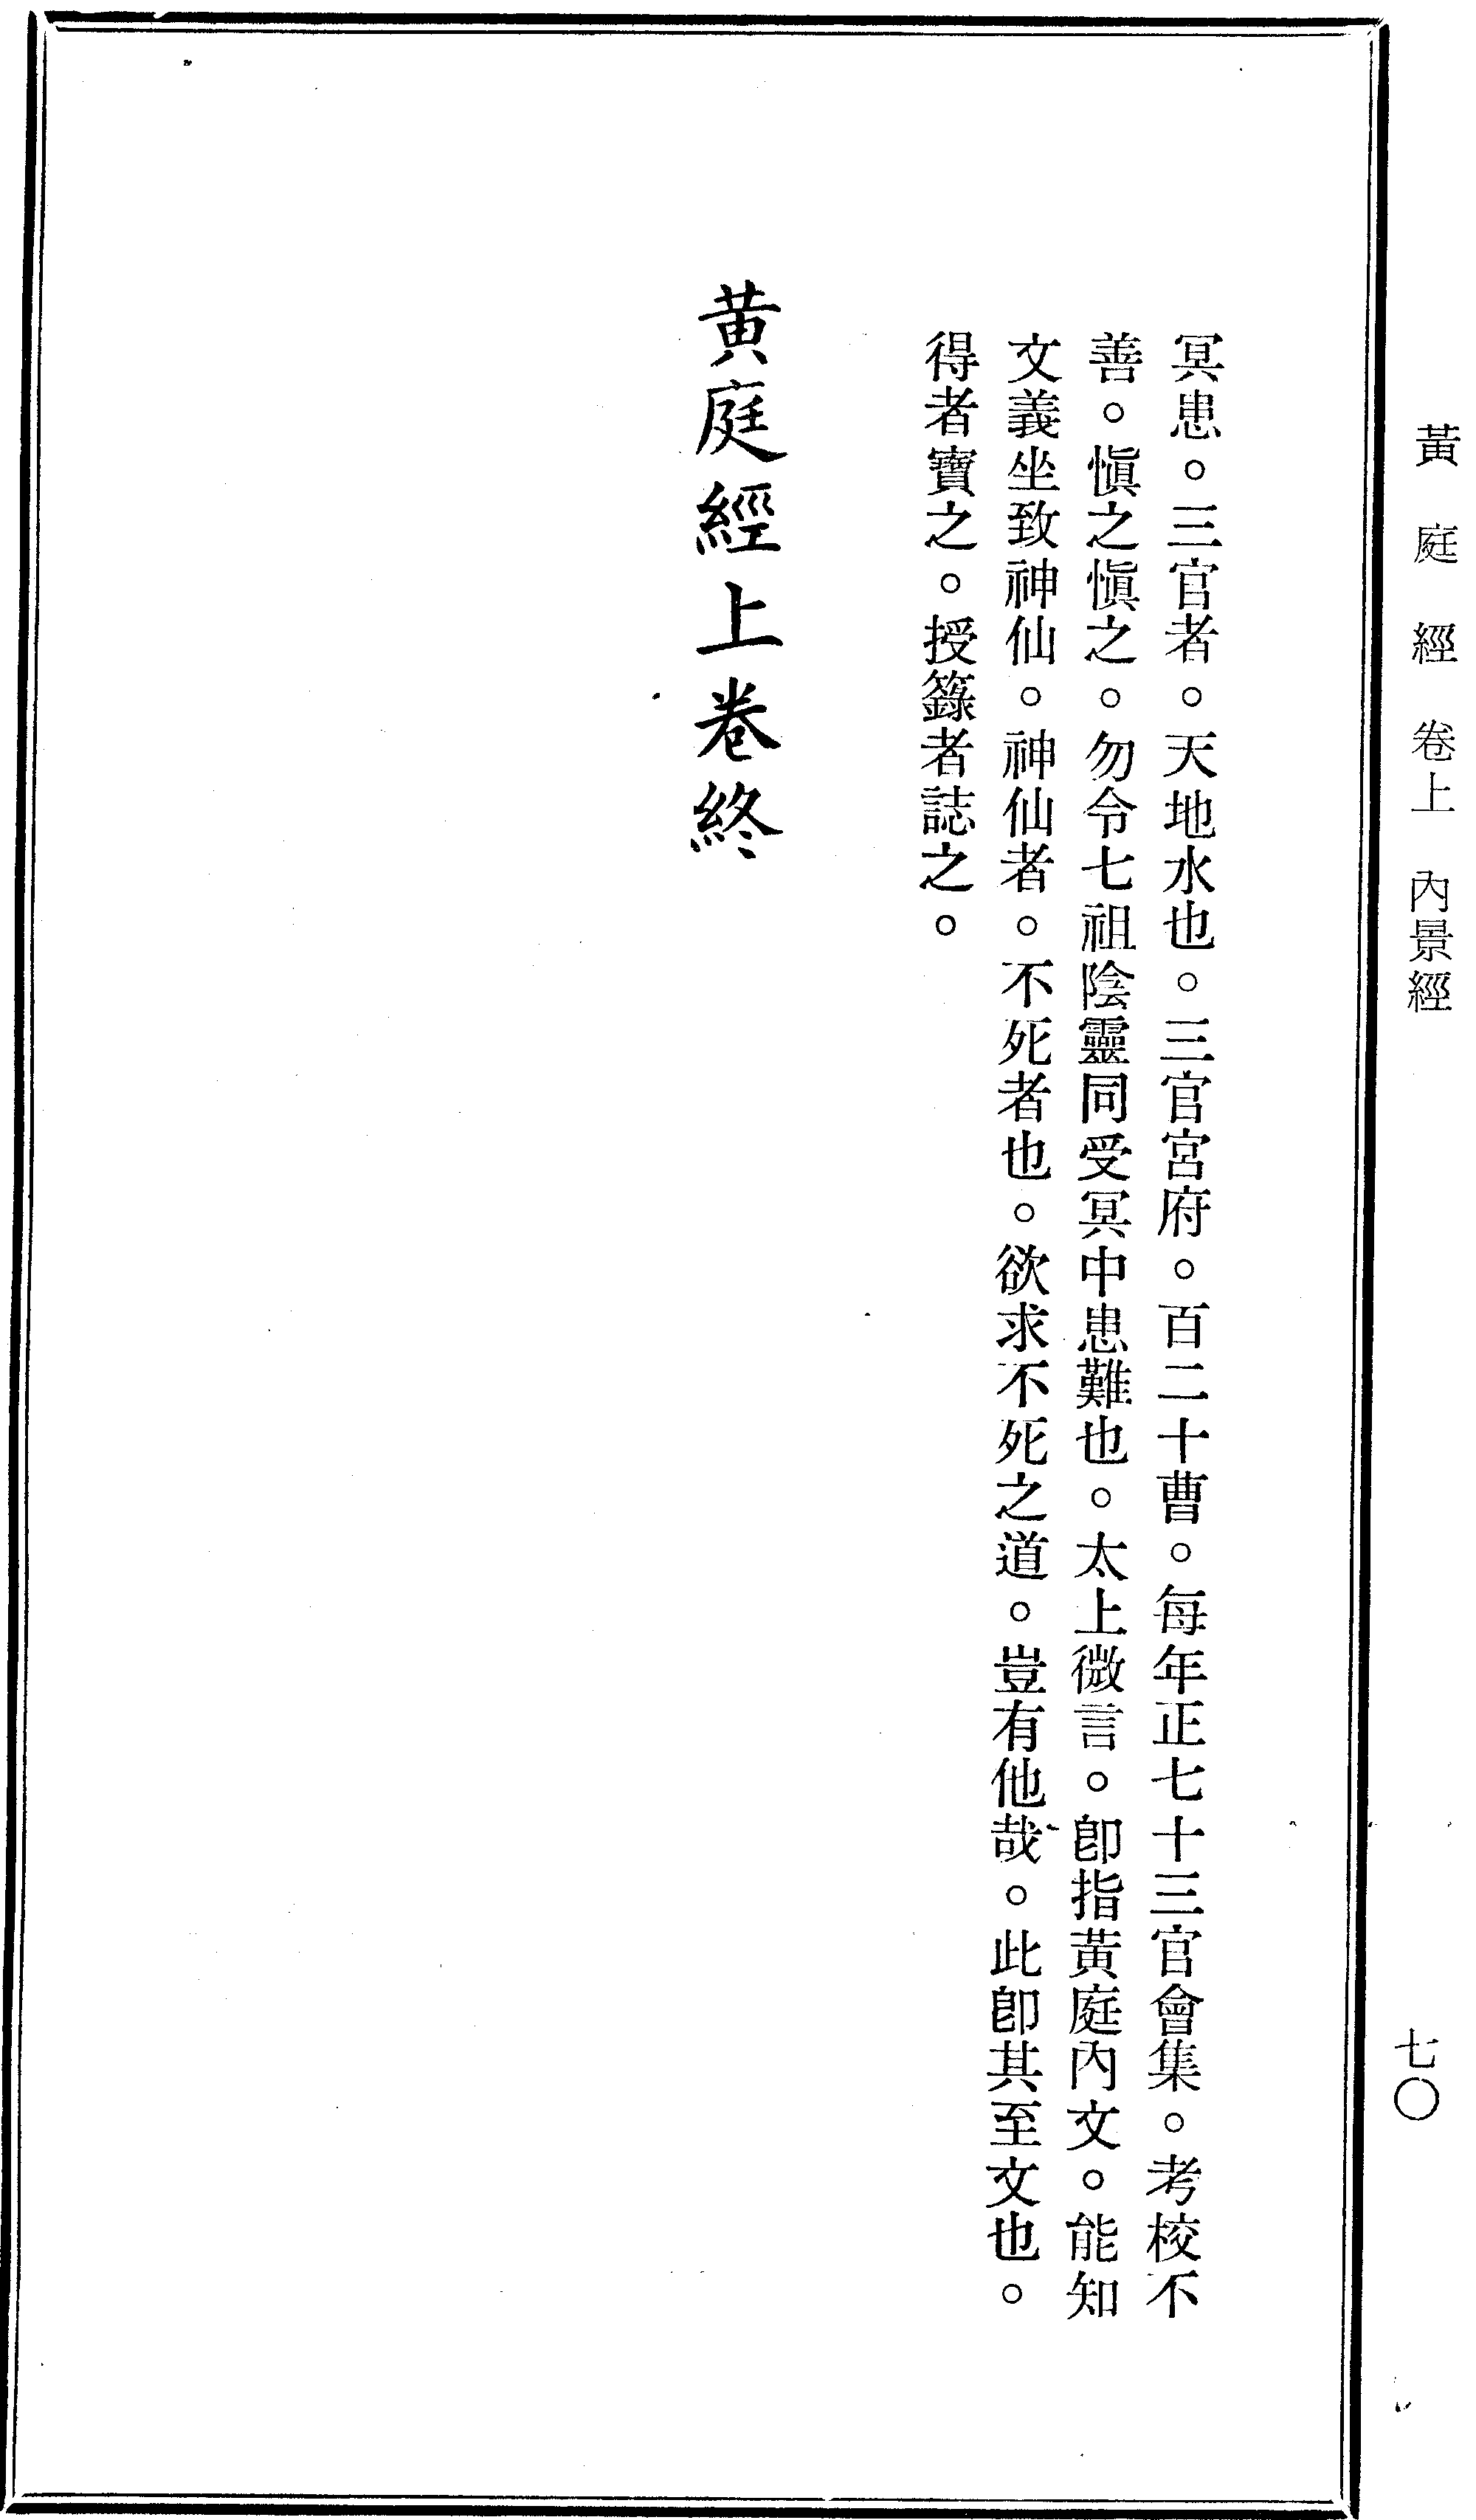 黃庭經 卷上 內景經
七〇
冥患。三官者。天地水也。三官宮府。百二十曹。每年正七十三官會集。考校不
善。愼之愼之。勿令七祖陰靈同受冥中患難也。太上微言。卽指黃庭內文。能知
文義坐致神仙。神仙者。不死者也。欲求不死之道。豈有他哉。此卽其至文也。
得者寶之。授籙者誌之。
黄庭經上卷終